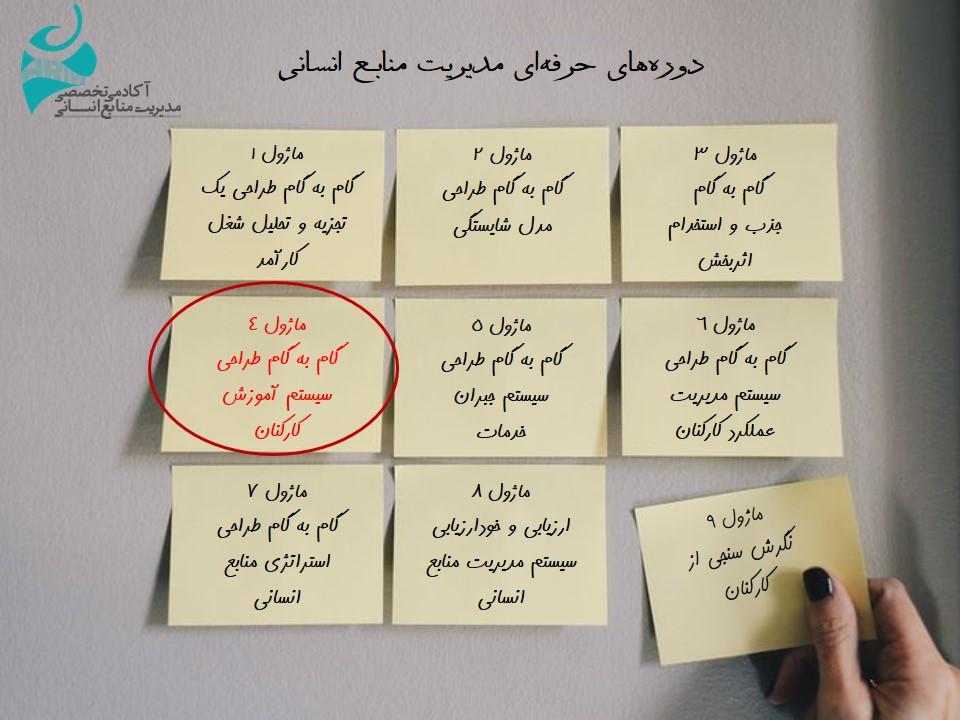 دوره‌های حرفه‌ای مدیریت منابع انسانی
آکادمی تخصصی
مدیریت منابع انسانی
ماژول ۱
گام به گام طراحی یک
تجزیه و تحلیل شغل
کارآمد
ماژول ۲
گام به گام طراحی
مدل شایستگی
ماژول ۳
گام به گام
جذب و استخدام
اثربخش
ماژول ٤
گام به گام طراحی
سیستم آموزش
کارکنان
ماژول ۵
گام به گام طراحی
سیستم جبران
خدمات
ماژول ٦
گام به گام طراحی
سیستم مدیریت
عملکرد کارکنان
ماژول ۷
گام به گام طراحی
استراتژی منابع
انسانی
ماژول ۸
ارزیابی و خودارزیابی
سیستم مدیریت منابع
انسانی
ماژول ۹
نگرش سنجی از
کارکنان